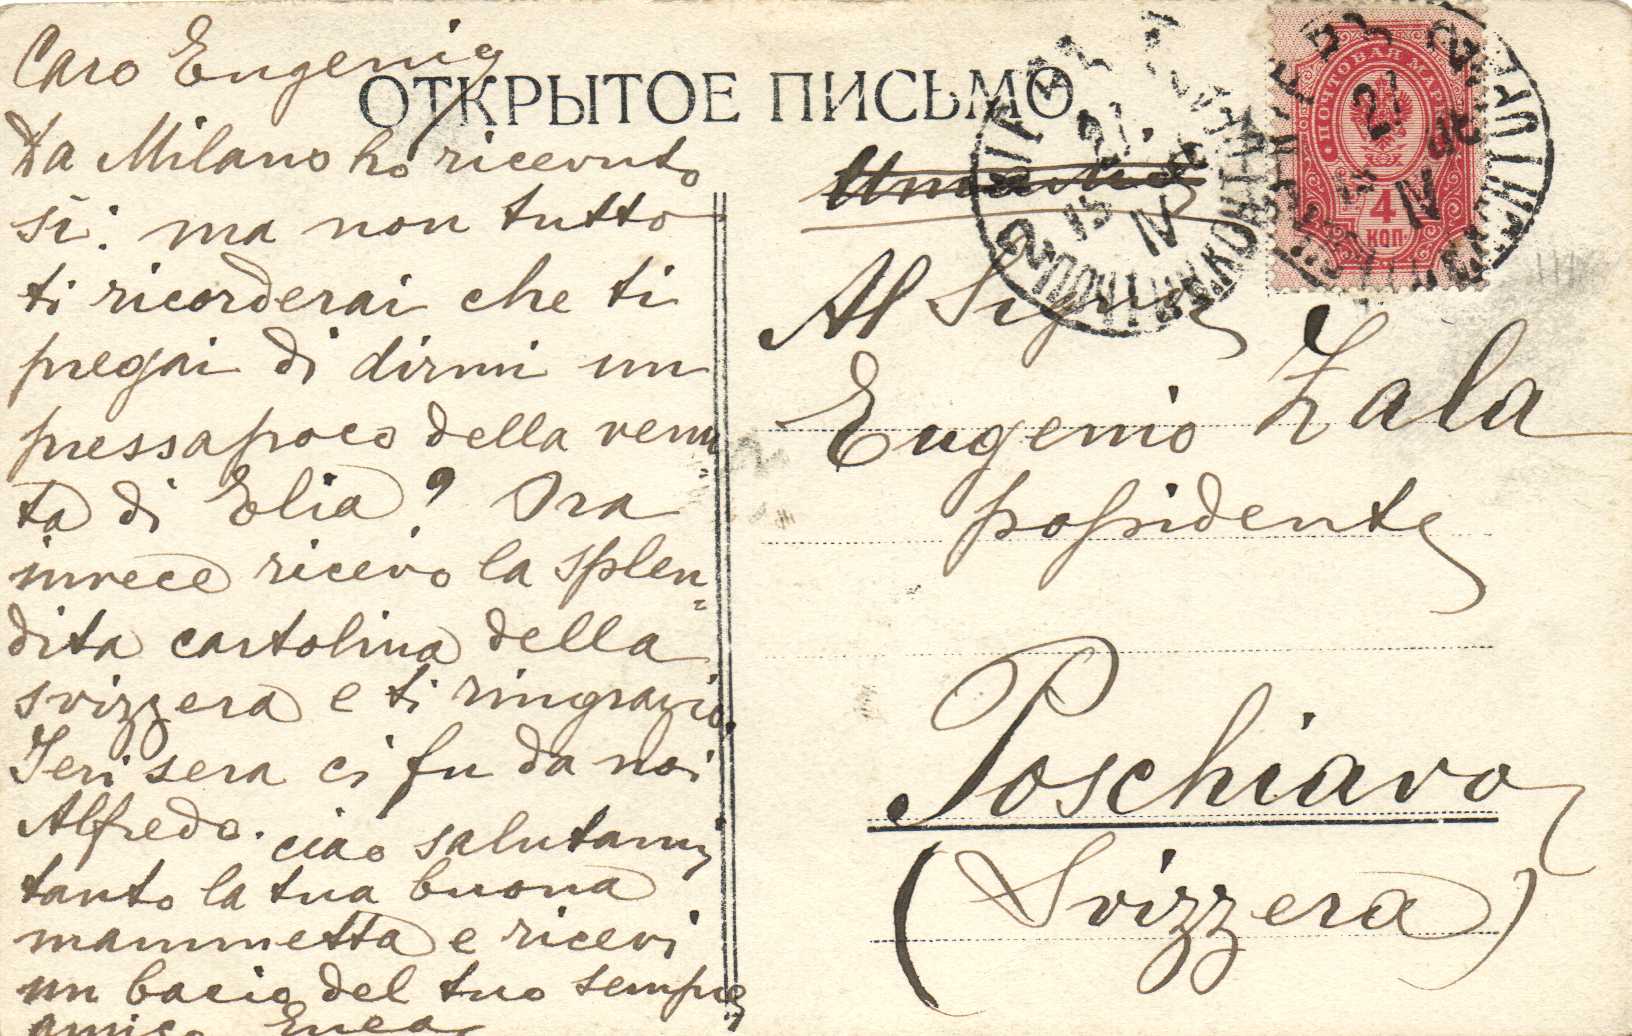 ОТКРЫТОЕ ПИСЬМО
Caro Eugenio
Da Milano ho ricevuto
si. ma non tutto
ti ricorderai che ti
pregai di dirmi un
pressapoco della venu=
ta di Elia? Ora
invece ricevo la splen=
dita cartolina della
svizzera e ti ringrazio
Jeri sera ci fu da noi
Alfredo. ciao salutami
tanto la tua buona
mammetta e ricevi
un bacio del tuo sempre
amico Enea
ПОЧТОВАЯ МАРКА
4
КОП
21
IV
Al Signor
Eugenio Zala
possidente
Poschiavo
(Svizzera)